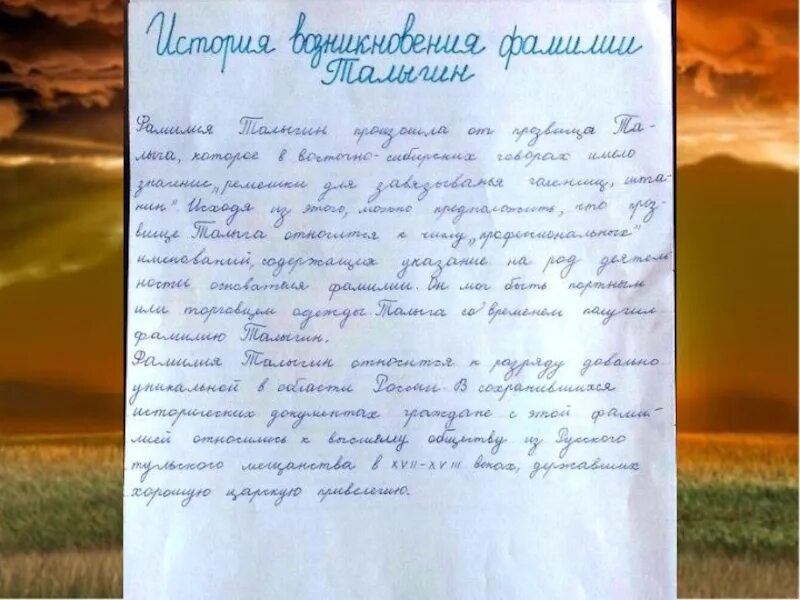 История возникновения фамилии
Талыгин
Фамилия Талыгин произошла от прозвища Та-
лыга, которое в восточно-сибирских говорах имело
значение „ремешки для завязыванья голенищ, шта-
нин". Исходя из этого, можно предположить, что проз-
вище Талыга относится к числу „профессиональных"
именований, содержащих указание на род деятель-
ности основателя фамилии. Он мог быть портным
или торговцем одежды. Талыга со временем получил
фамилию Талыгин.
Фамилия Талыгин относится к разряду довально
уникальной в области России. В сохранившихся
исторических документах граждане с этой фами-
лией относились к высшему обществу из Русского
тульского мещанства в XVII-XVIII веках, державших
хорошую царскую привелегию.